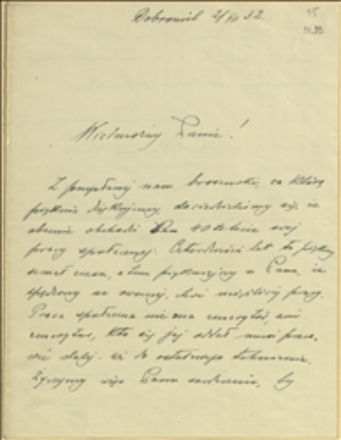 Dobromil 2/VI 32.
Wielmożny Panie!
Z przysłanej nam broszurki, za którą
pięknie dziękujemy, dowiedzieliśmy się, że
obecnie obchodzi Pan 40-lecie swej
pracy społecznej. Czterdzieści lat to piękny
czasu, a tem piękniejszy u Pana, że
spędzony na owocnej, choć pracy.
Praca społeczna nie zna emerytury, ani
emerytów, kto się jej oddał musi praco-
wać dalej - aż do ostatniego tchnienia.
Życzymy więc Panu serdecznie, by